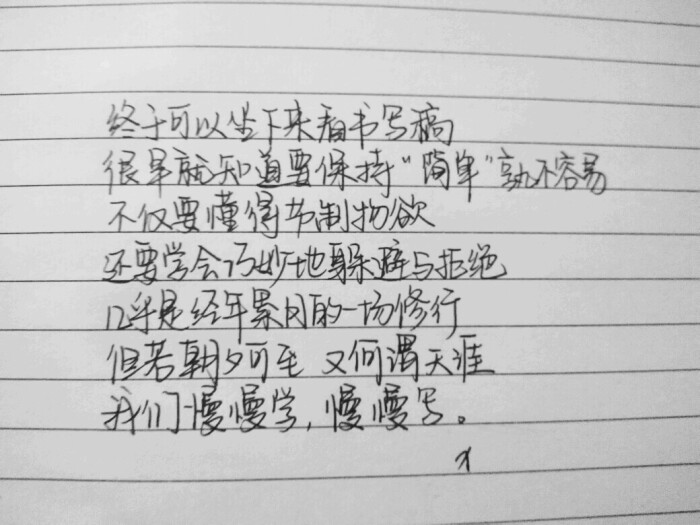 终于可以坐下来看书写稿
很早就知道要保持“简单”就不容易
不仅要懂得节制物欲
还要学会巧妙地躲避与拒绝
几乎是经年累月的一场修行
但若朝夕可至 又何谓天涯
我们慢慢学，慢慢写。